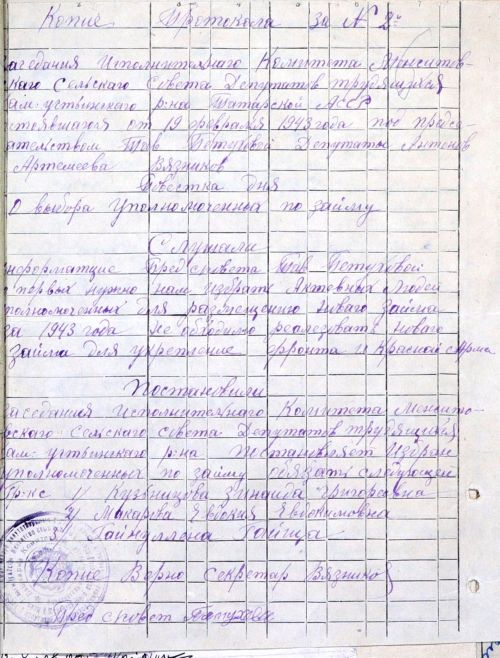 Копие Протокола за № 2й
заседания Исполнительнаго Комитета Менситов-
каго Сельскаго Совета Депутатов трудящихся
ам-устьинскаго р-на Татарской АССР
стоявшагося от 19 февраля 1943 года под предсе-
ательством Тов Петуховой Депутаты Антонов
Артемеева Вязников
Повестка дня
О выбора Уполномоченных по займу
Слушали
нформатцие Пред совета Тов Петуховой
первых нужно нам избрать Активных Людей
полномоченных для размещению новаго займа
за 1943 года не обходимо реализовать новаго
займа для укрепление фронта и Красной Арме
Постановили
аседания Исполнительнаго Комитета Менсито-
вскаго сельскаго совета Депутатов трудящихся
ам-устьинскаго р-на Постановляет Избран
уполномоченных по займу обязать следующем
Гр-кс 1/ Кузьницова Зинаида Григоревна
2/ Макарова Евдокия Евдокимовна
3/ Гайнуллена Гайша
Копие Верно Секретар Вязников
Пред с/совет Петухова